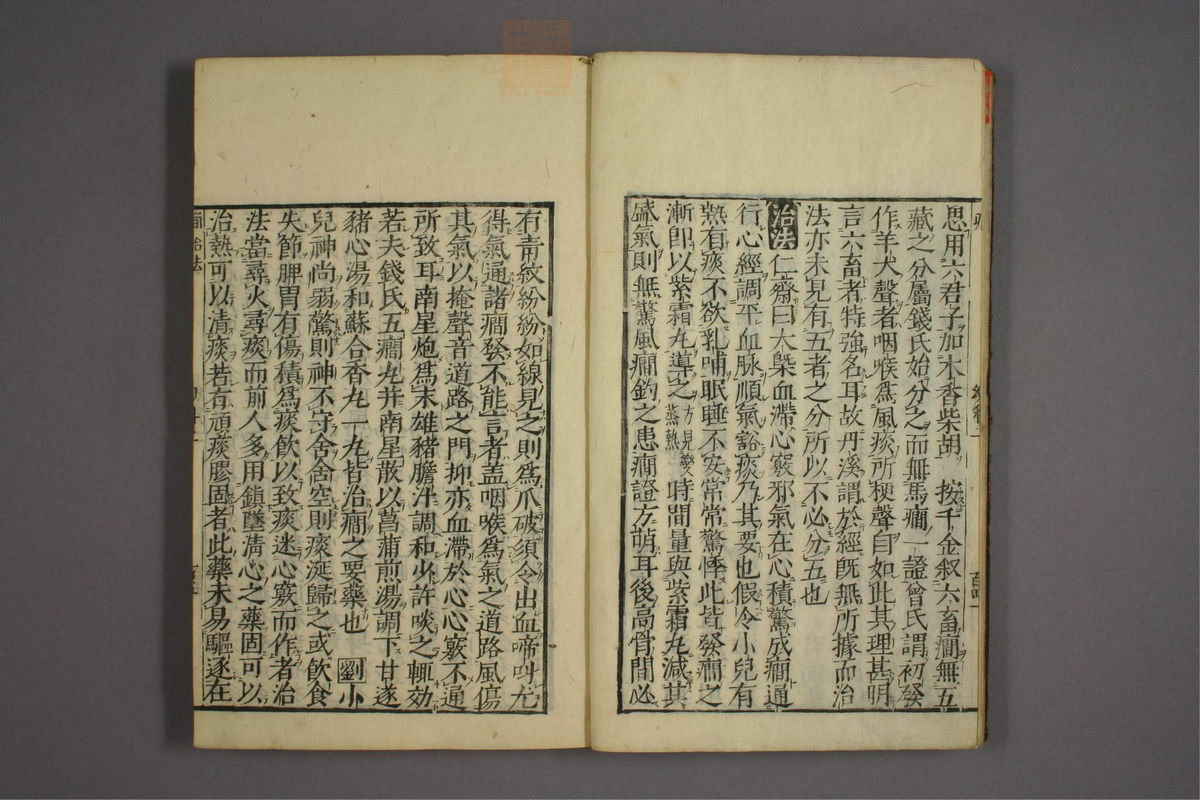 思用六君子加木香柴胡　按千金叙六畜澗無五
藏之分屬錢氏始分之而無馬癇一證曾氏謂初發
作羊犬聲者咽喉爲風痰所梗聲自如此其理甚明
言六畜者特強名耳故丹溪謂於經既無所據而治
法亦未見有五者之分所以不必分五也
治法　仁齋曰大槩血滯心竅邪氣在心積驚成癇通
行心經調平血脉順氣豁痰乃其要也假令小兒有
熱有痰不欲乳哺眠睡不安常常驚悸此皆發癇之
漸即以紫霜丸導之方見變蒸熱時間量與紫霜丸減其
盛氣則無驚風癇釣之患癇證方萌耳後高骨間必
有青紋紛紛如線見之則爲爪破須令出血啼叫尤
得氣通諸癇發不能言者盖咽喉爲氣之道路風傷
其氣以掩聲音道路之門抑亦血滯於心心竅不通
所致耳南星炮爲末雄豬膽汁調和少許啖之輒効
若夫錢氏五癇丸并南星散以菖蒲煎湯調下甘遂
豬心湯和蘇合香丸一丸皆治癇之要藥也　劉小
兒神尚弱驚則神不守舍舍空則痰涎歸之或飲食
失節脾胃有傷積爲痰飲以致痰迷心竅而作者治
法當尋火尋痰而前人多用鎮墜清心之藥固可以
治熱可以清痰若有頑痰膠固者此藥未易驅逐在